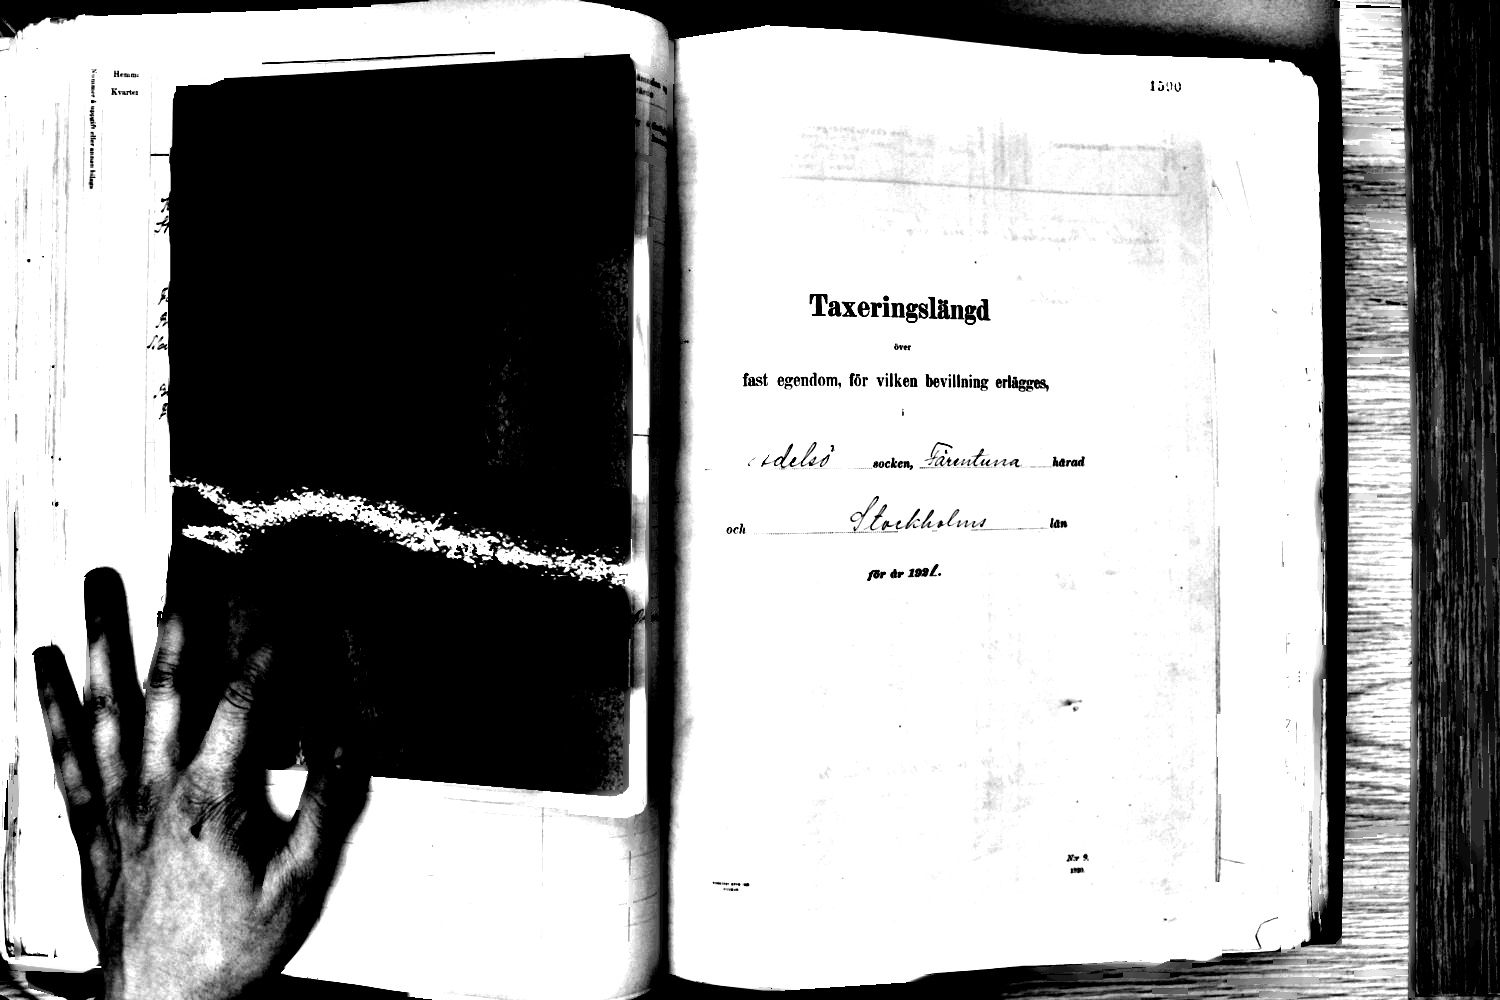 Nummer å uppgift eller annan bilaga
Hemm
Kvarter
1590
Taxeringslängd
över
fast egendom, för vilken bevillning erlägges,
i
Adelsö socken, Färentuna härad
och Stockholms län
för år 1921.
N:r 9.
1920.